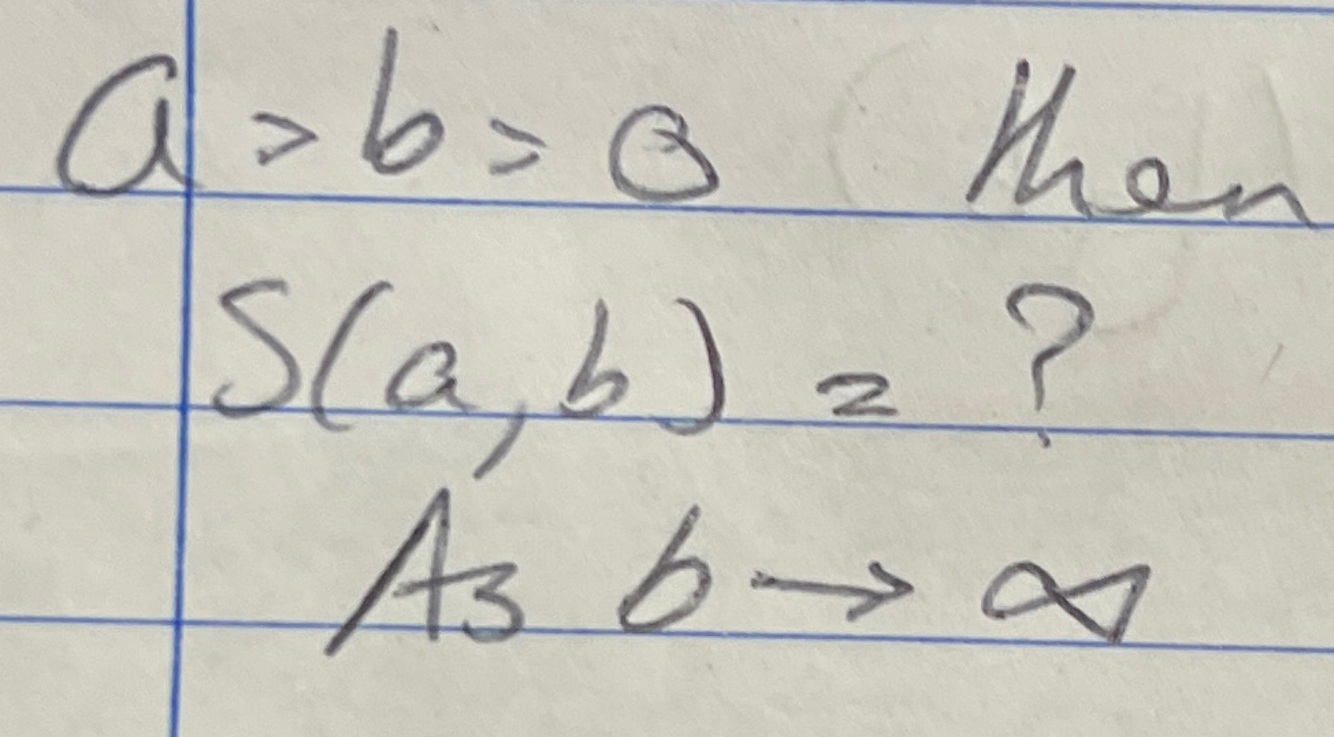 a > b > 0 then
S(a,b) = ?
As b → ∞